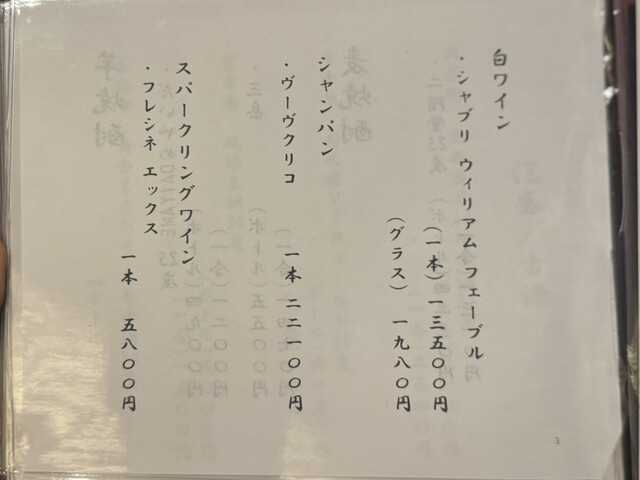 白ワイン
・シャブリ ウィリアム フェーブル
（一本）一三五〇〇円
（グラス） 一九八〇円
シャンパン
・ヴーヴクリコ 一本 二二一〇〇円
スパークリングワイン
・フレシネ エックス 一本 五八〇〇円
3